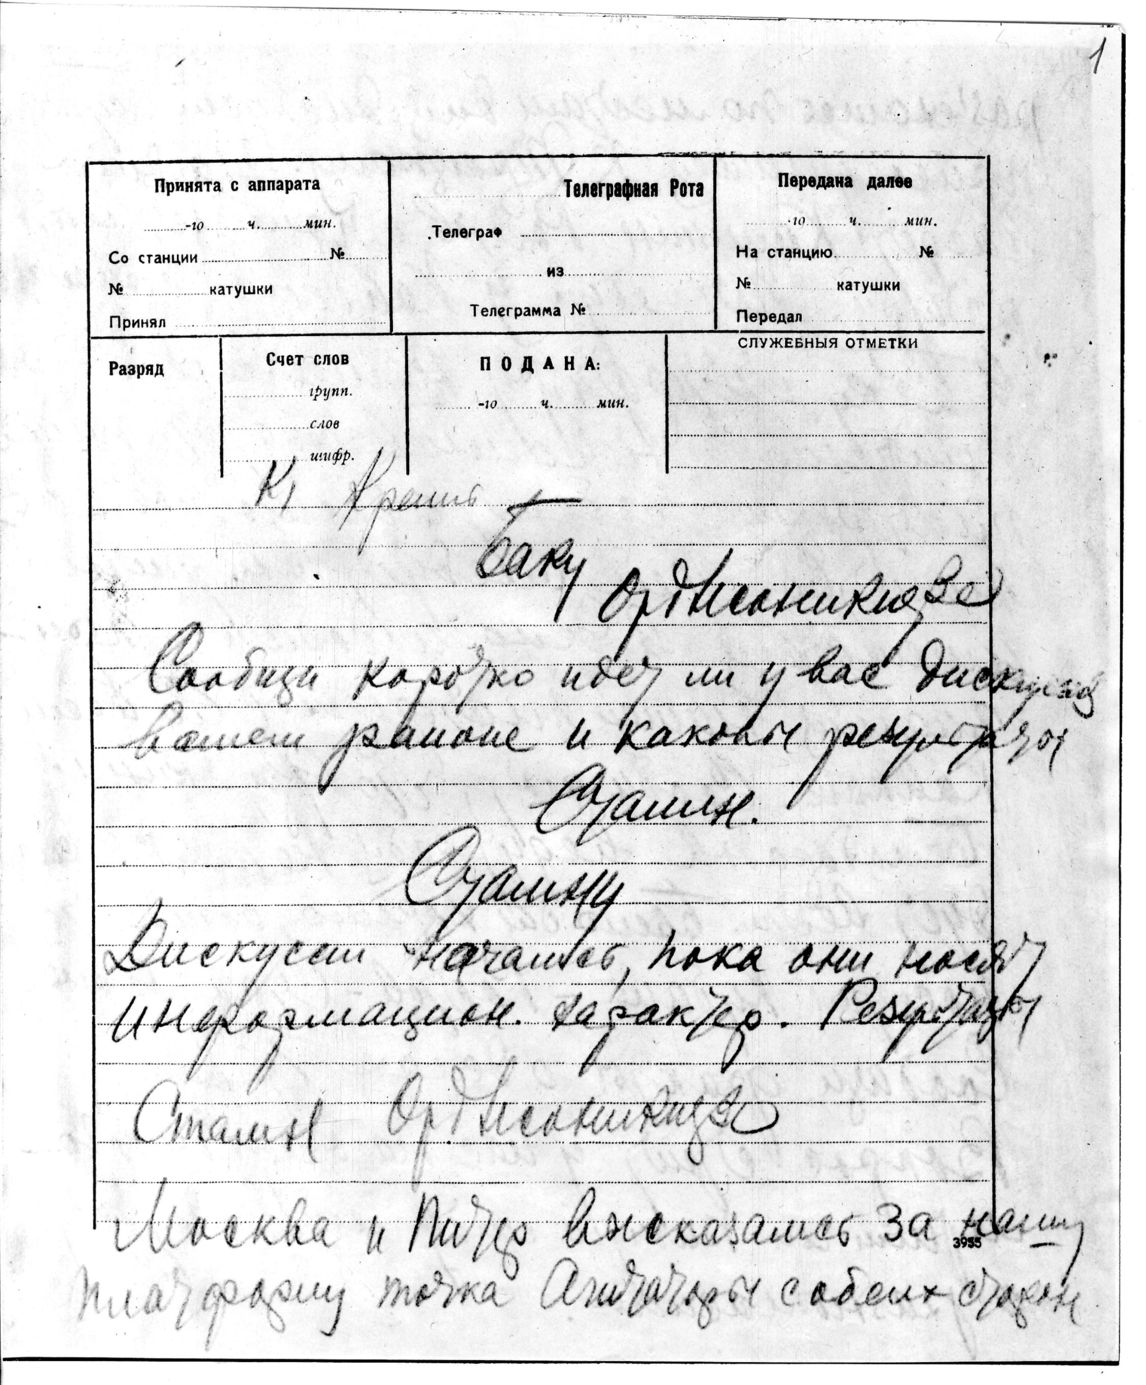 1
Принята с аппарата
-го ч. мин.
Со станции №
№ катушки
Принял
Телеграфная Рота
Телеграф
из
Телеграмма №
Передана далее
-го ч. мин.
На станцию №
№ катушки
Передал
Разряд
Счет слов
групп.
слов
шифр.
ПОДАНА:
-го ч. мин.
СЛУЖЕБНЫЯ ОТМЕТКИ
Баку
Орджоникидзе
Сообщи коротко идет ли у вас дискуссия
вашем районе и каковы результаты
Сталин.
Сталину
Дискуссии начались, пока они носят
информацион. характер. Результаты
Сталин Орджоникидзе
Москва и Питер высказались за нашу
3955
платформу точка Агитаторы с обеих сторон